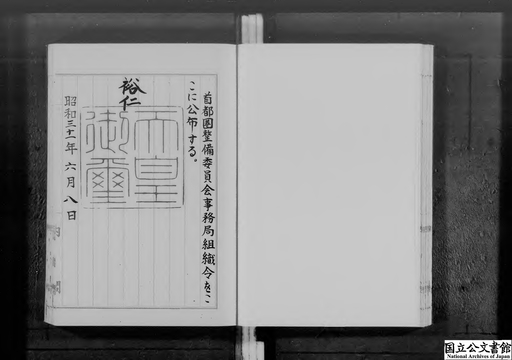 首都圏整備委員会事務局組織令をこ
こに公布する。
裕仁
天皇
御璽
昭和三十一年六月八日
国立公文書館
National Archives of Japan